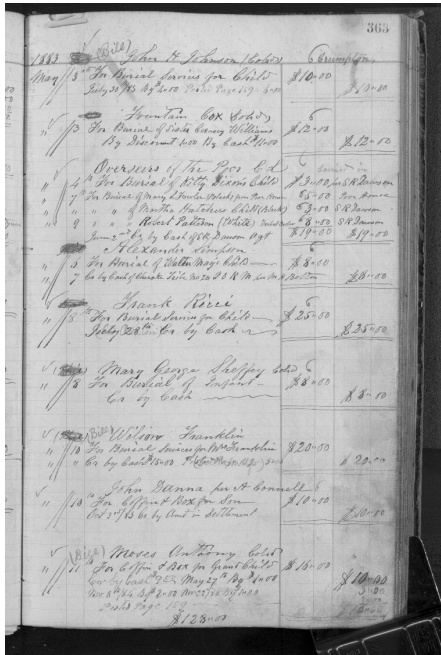 363
1883 (Bill) John H Johnson (Cold) Crumpton
May 3 For Burial Services for Child $10.00
July 30/83 By $4.00 Posted Page 159 6.00 $10.00
Fountain Cox Cold
" 3 For Burial of Sister Williams $12.00
By Discount 1.00 By Cash $11.00 $12.00
Overseers of The Poor C d
" 4 For Burial of Kitty Dixons Child $3.00 for S K Dawson
" 7 For Burial of Mary Fowler (Black) from Poor House 5.00 Poor House
" " " of Martha Hatchers Child (Black) 3.00 S K Dawson
" 9 " " Robert Patteson (White) 8.00 S K Dawson
June 2nd Cr by Cash of S K Dawson Agt $19.00 $19.00
Alexander Simpson
" 5 For Burial of Walter May's Child $8.00
" 7 Cr by Cash of $8.00
Frank Ricci
" 8 For Burial Services for Child $25.00
July 28th Cr by Cash $25.00
Mary George Sheffey Cold
" 8 For Burial of Infant $8.00
Cr by Cash $8.00
(Bill) Wilson Franklin
" 10 For Burial Services for Mrs Franklin $20.00
" " Cr by Cash $15.00 5.00 $20.00
John Danna per A Connell
" 10 For Coffin & Box for Son $10.00
Oct 3rd/83 Cr by Amt in Settlement $10.00
(Bill) Moses Anthony Cold
" 11 For Coffin & Box for Grand Child $18.00
Cr by Cash May 27th By $1.00 $10.00
Nov 8th/84 By $2.00 5.00
Posted Page 159
$128.00